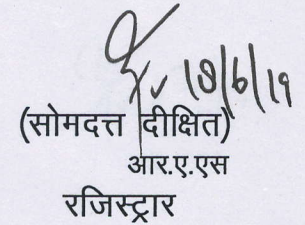 18/6/19
(सोमदत्त दीक्षित)
आर.ए.एस
रजिस्ट्रार